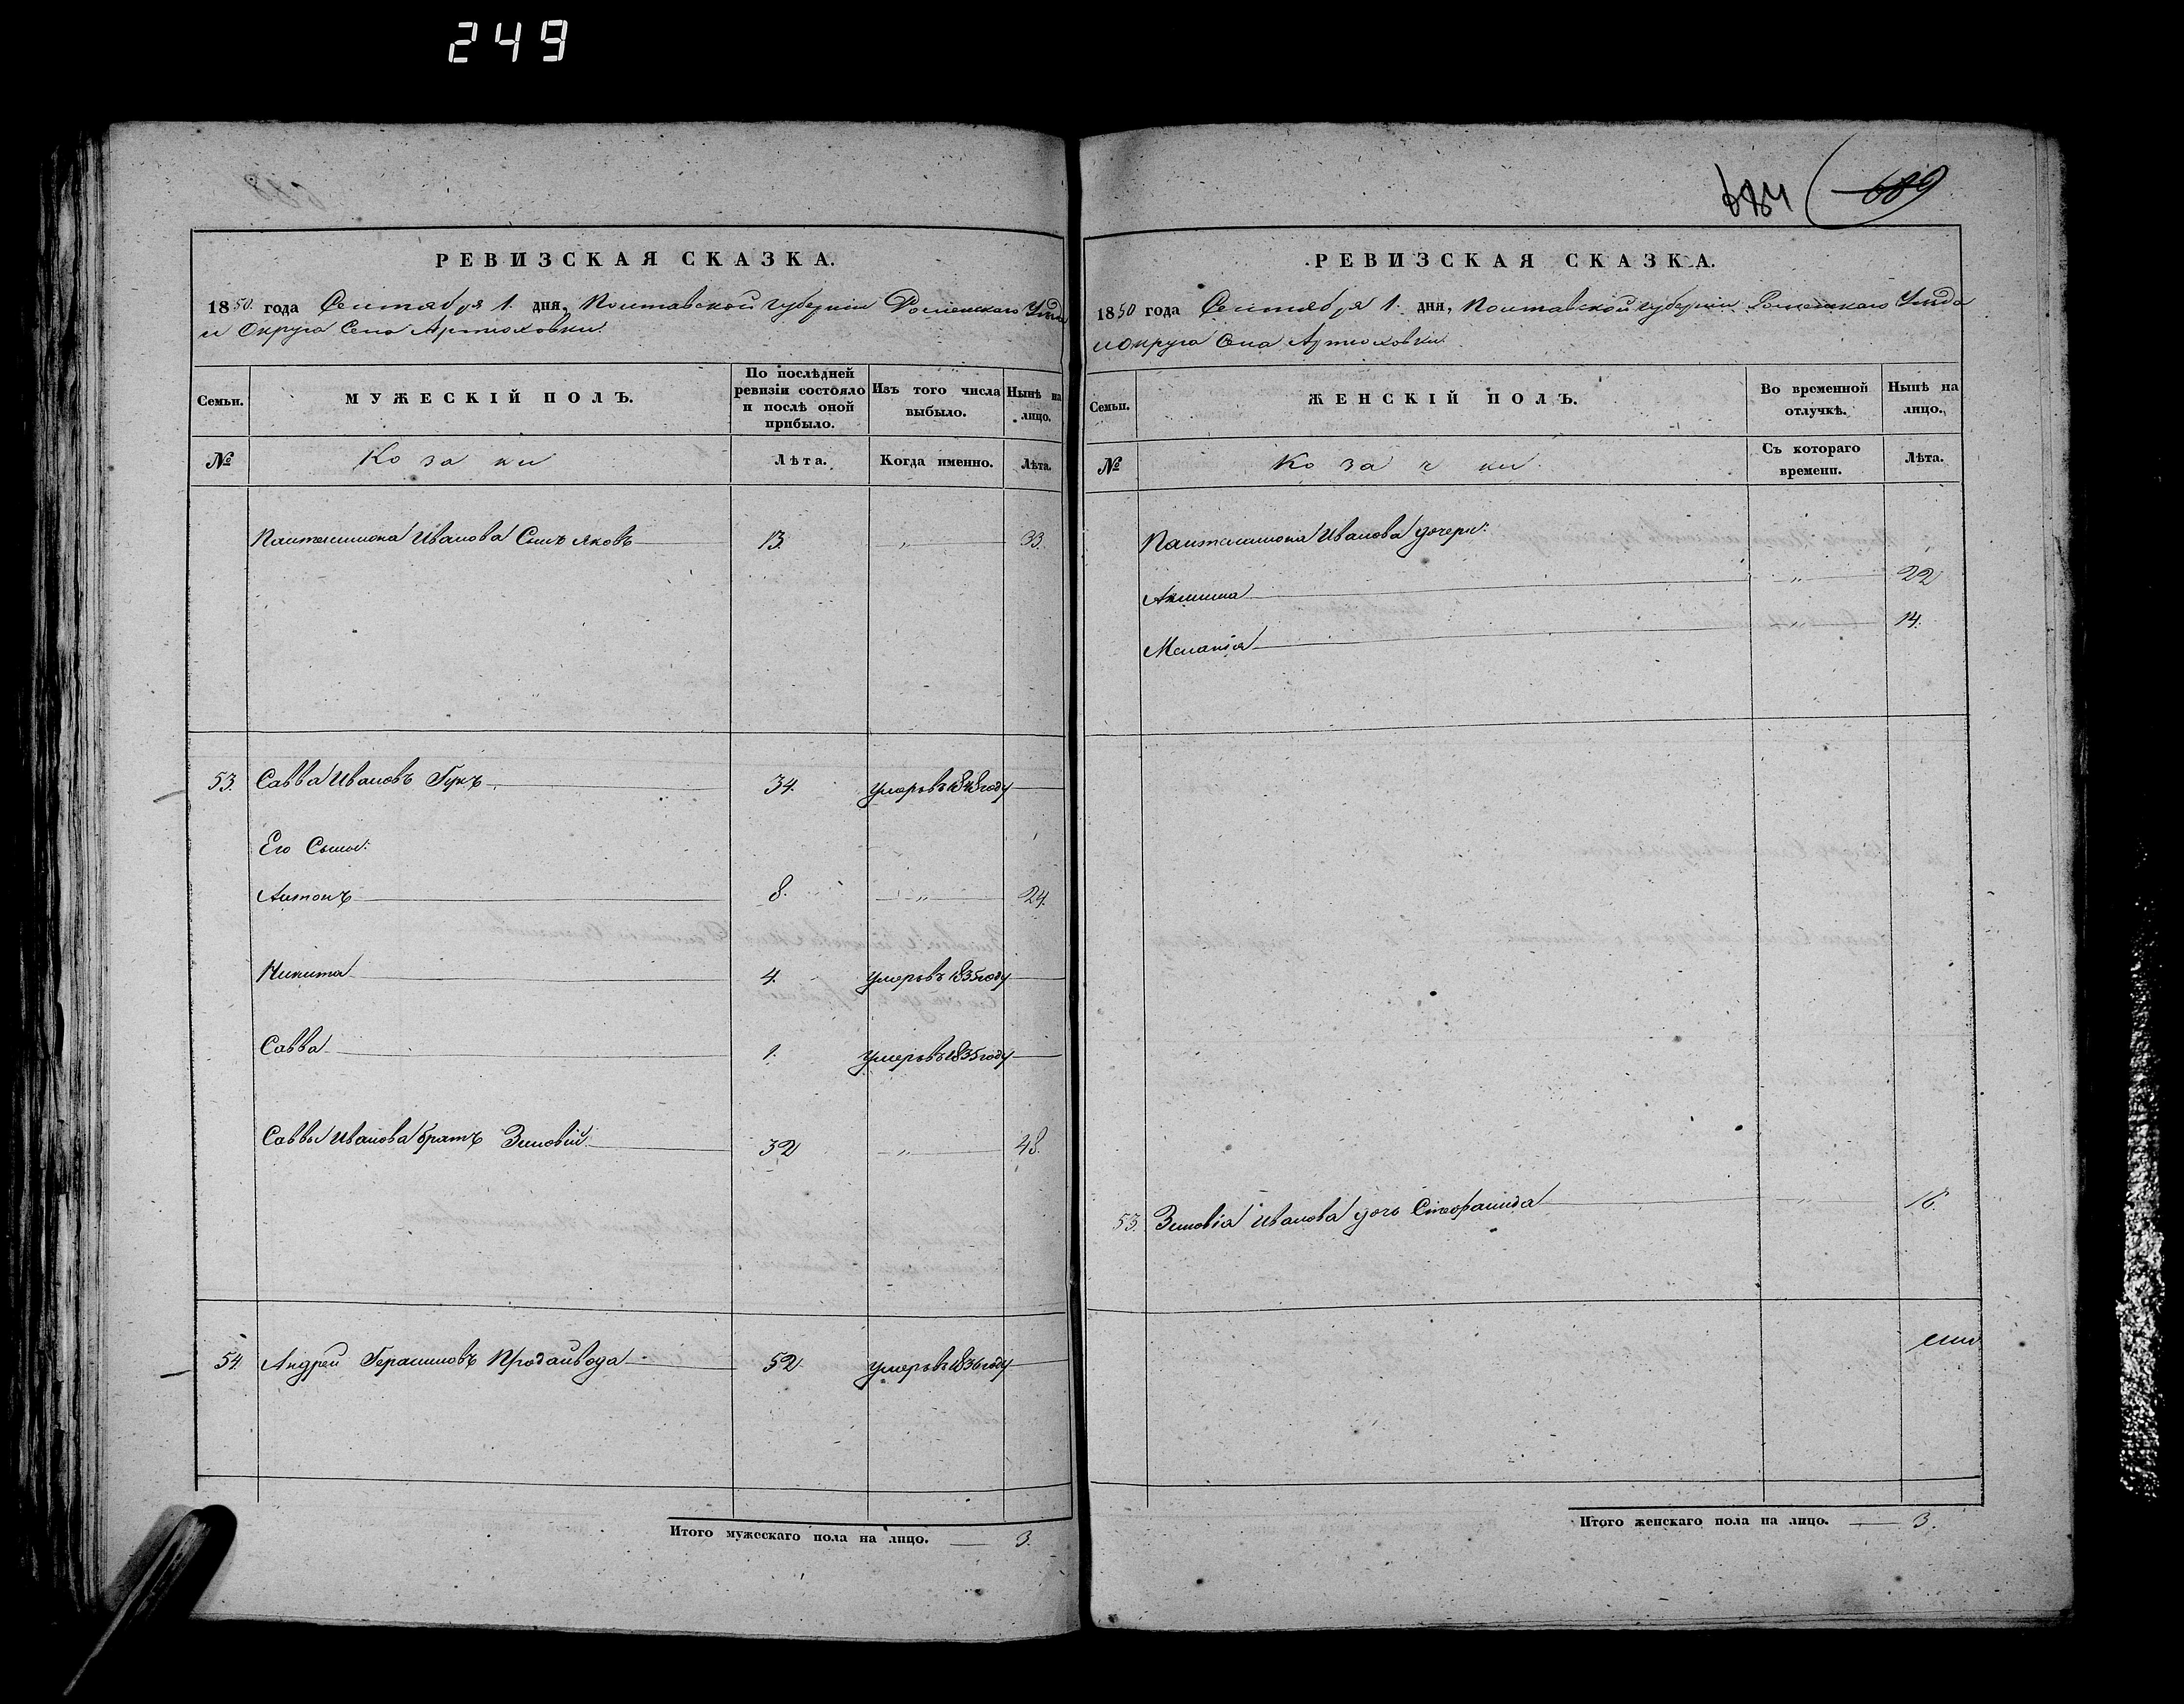 249
689
РЕВИЗСКАЯ СКАЗКА.
1850 года Сентября 1. дня, Полтавской губернiи Роменскаго Уѣзда
и Округа Села Артюховки.
Семьи.
МУЖЕСКIЙ ПОЛЪ.
По послѣдней ревизiи состояло и послѣ оной прибыло.
Изъ того числа выбыло.
Нынѣ на лицо.
№
Козаки
Лѣта.
Когда именно.
Лѣта.
Пантелимона Иванова Сынъ Яковъ 13. „ 33.
53. Савва Ивановъ Гукъ 34. умеръ въ 1848 году
Его Сыны:
Антонъ 8. „ 24.
Никита 4. умеръ въ 1835 году
Савва 1. умеръ въ 1835 году
Саввы Иванова братъ Зиновiй 32 „ 48.
54. Андрей Герасимовъ Продайвода 52 умеръ въ 1836 году
Итого мужескаго пола на лицо. 3.
РЕВИЗСКАЯ СКАЗКА.
1850 года Сентября 1. дня, Полтавской губернiи Роменскаго Уѣзда
и Округа Села Артюховки.
Семьи.
ЖЕНСКIЙ ПОЛЪ.
Во временной отлучкѣ.
Нынѣ на лицо.
№
Козачки
Съ котораго времени.
Лѣта.
Пантелимона Иванова дочери:
Акилина „ 22
Меланiя „ 14.
53. Зиновiя Иванова дочь Стефанида „ 16.
Итого женскаго пола на лицо. 3.